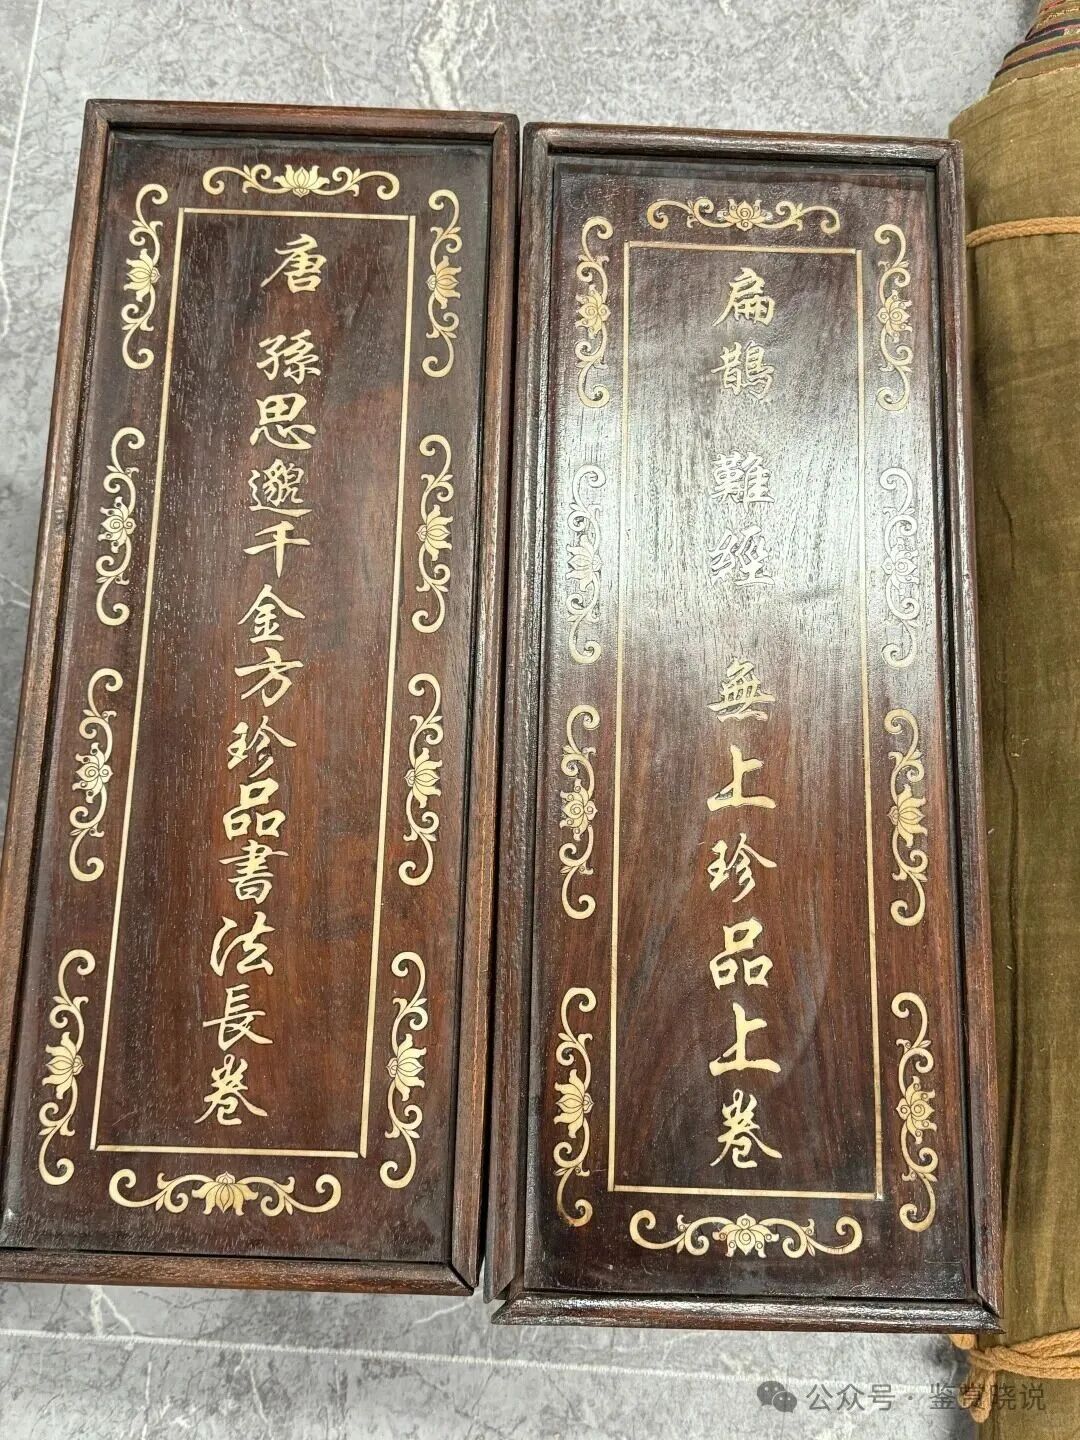 唐 孫思邈千金方珍品書法長卷
扁鵲 難經 無上珍品上卷
公众号 · 鉴赏晓说